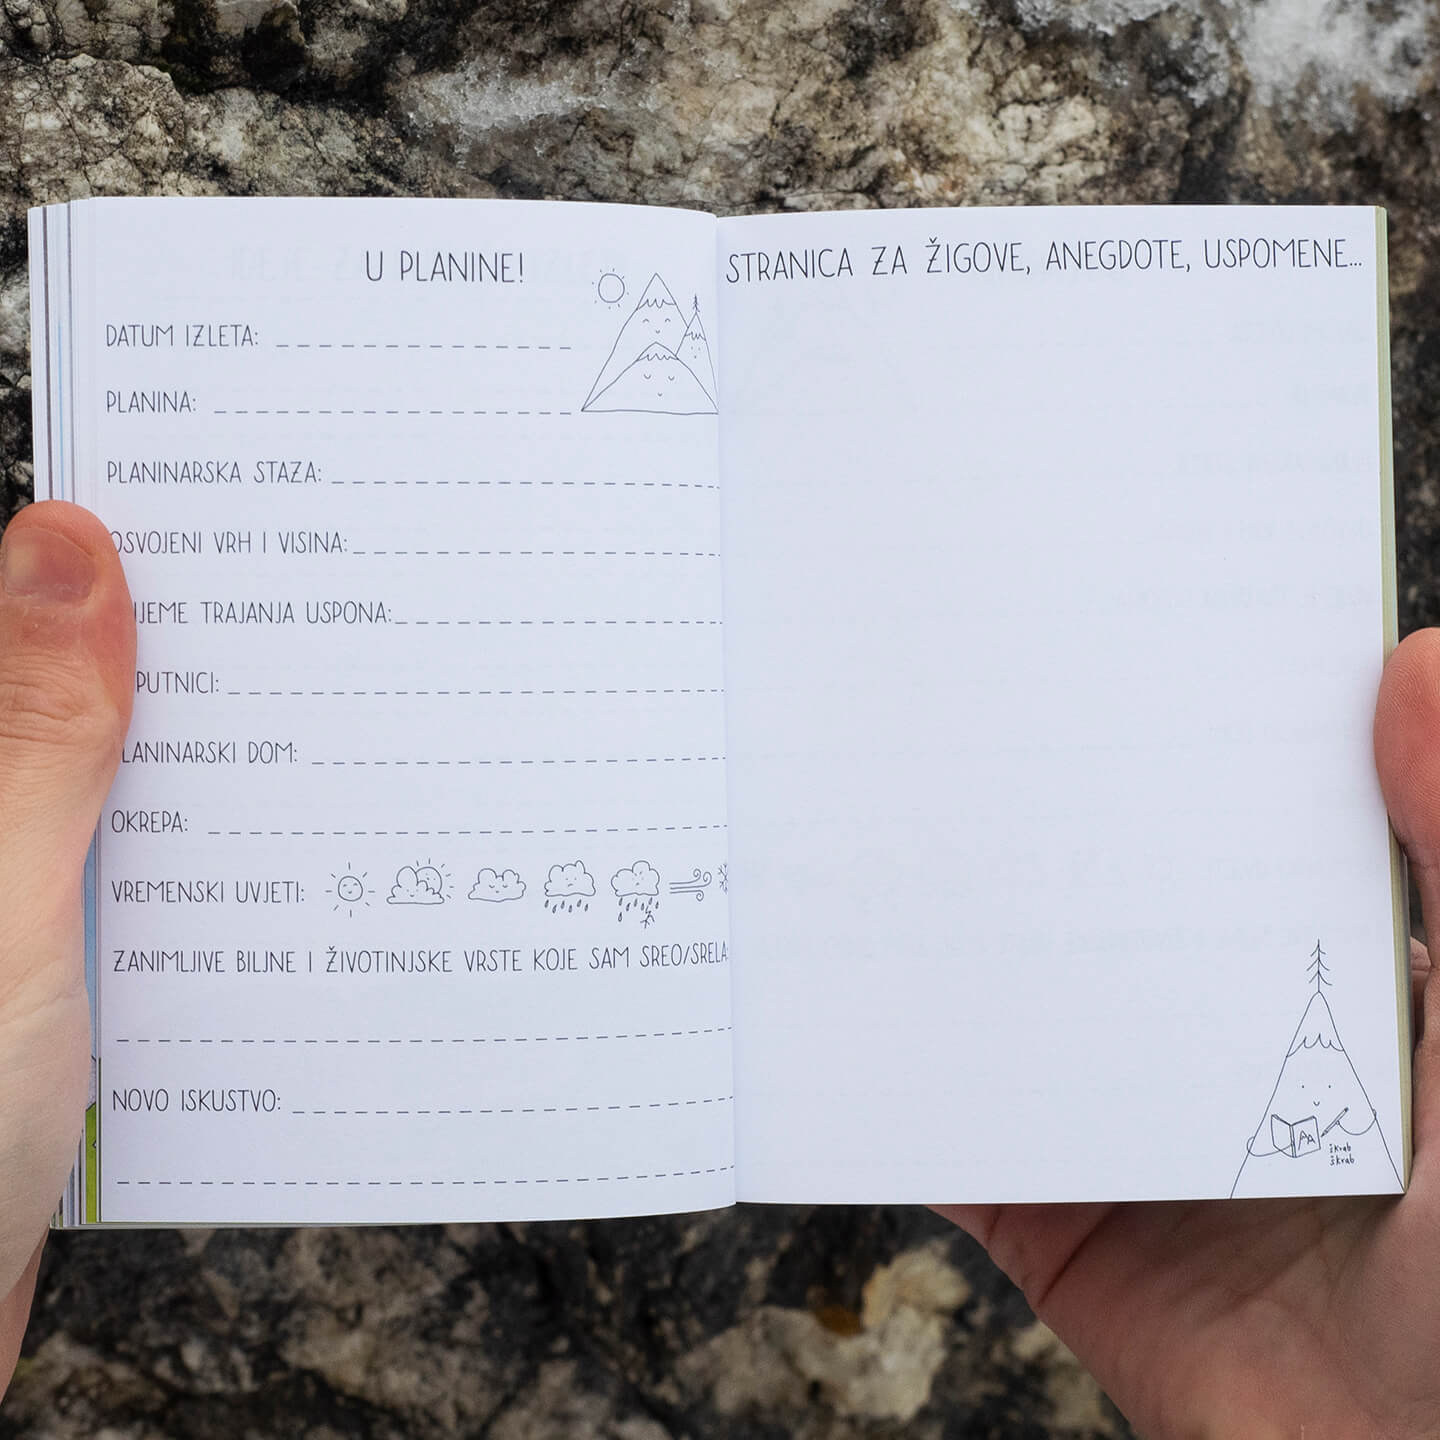 U PLANINE!
DATUM IZLETA:
PLANINA:
PLANINARSKA STAZA:
OSVOJENI VRH I VISINA:
TRAJANJA USPONA:
PLANINARSKI DOM:
OKREPA:
VREMENSKI UVJETI:
ZANIMLJIVE BILJNE I ŽIVOTINJSKE VRSTE KOJE SAM SREO/SRELA:
NOVO ISKUSTVO:
STRANICA ZA ŽIGOVE, ANEGDOTE, USPOMENE...
AA
škrab
škrab